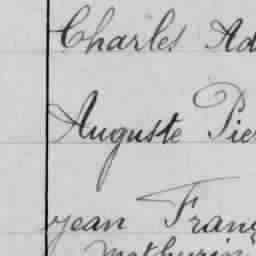 Charles Ad
Auguste Pie
Jean Franç
Mathurin